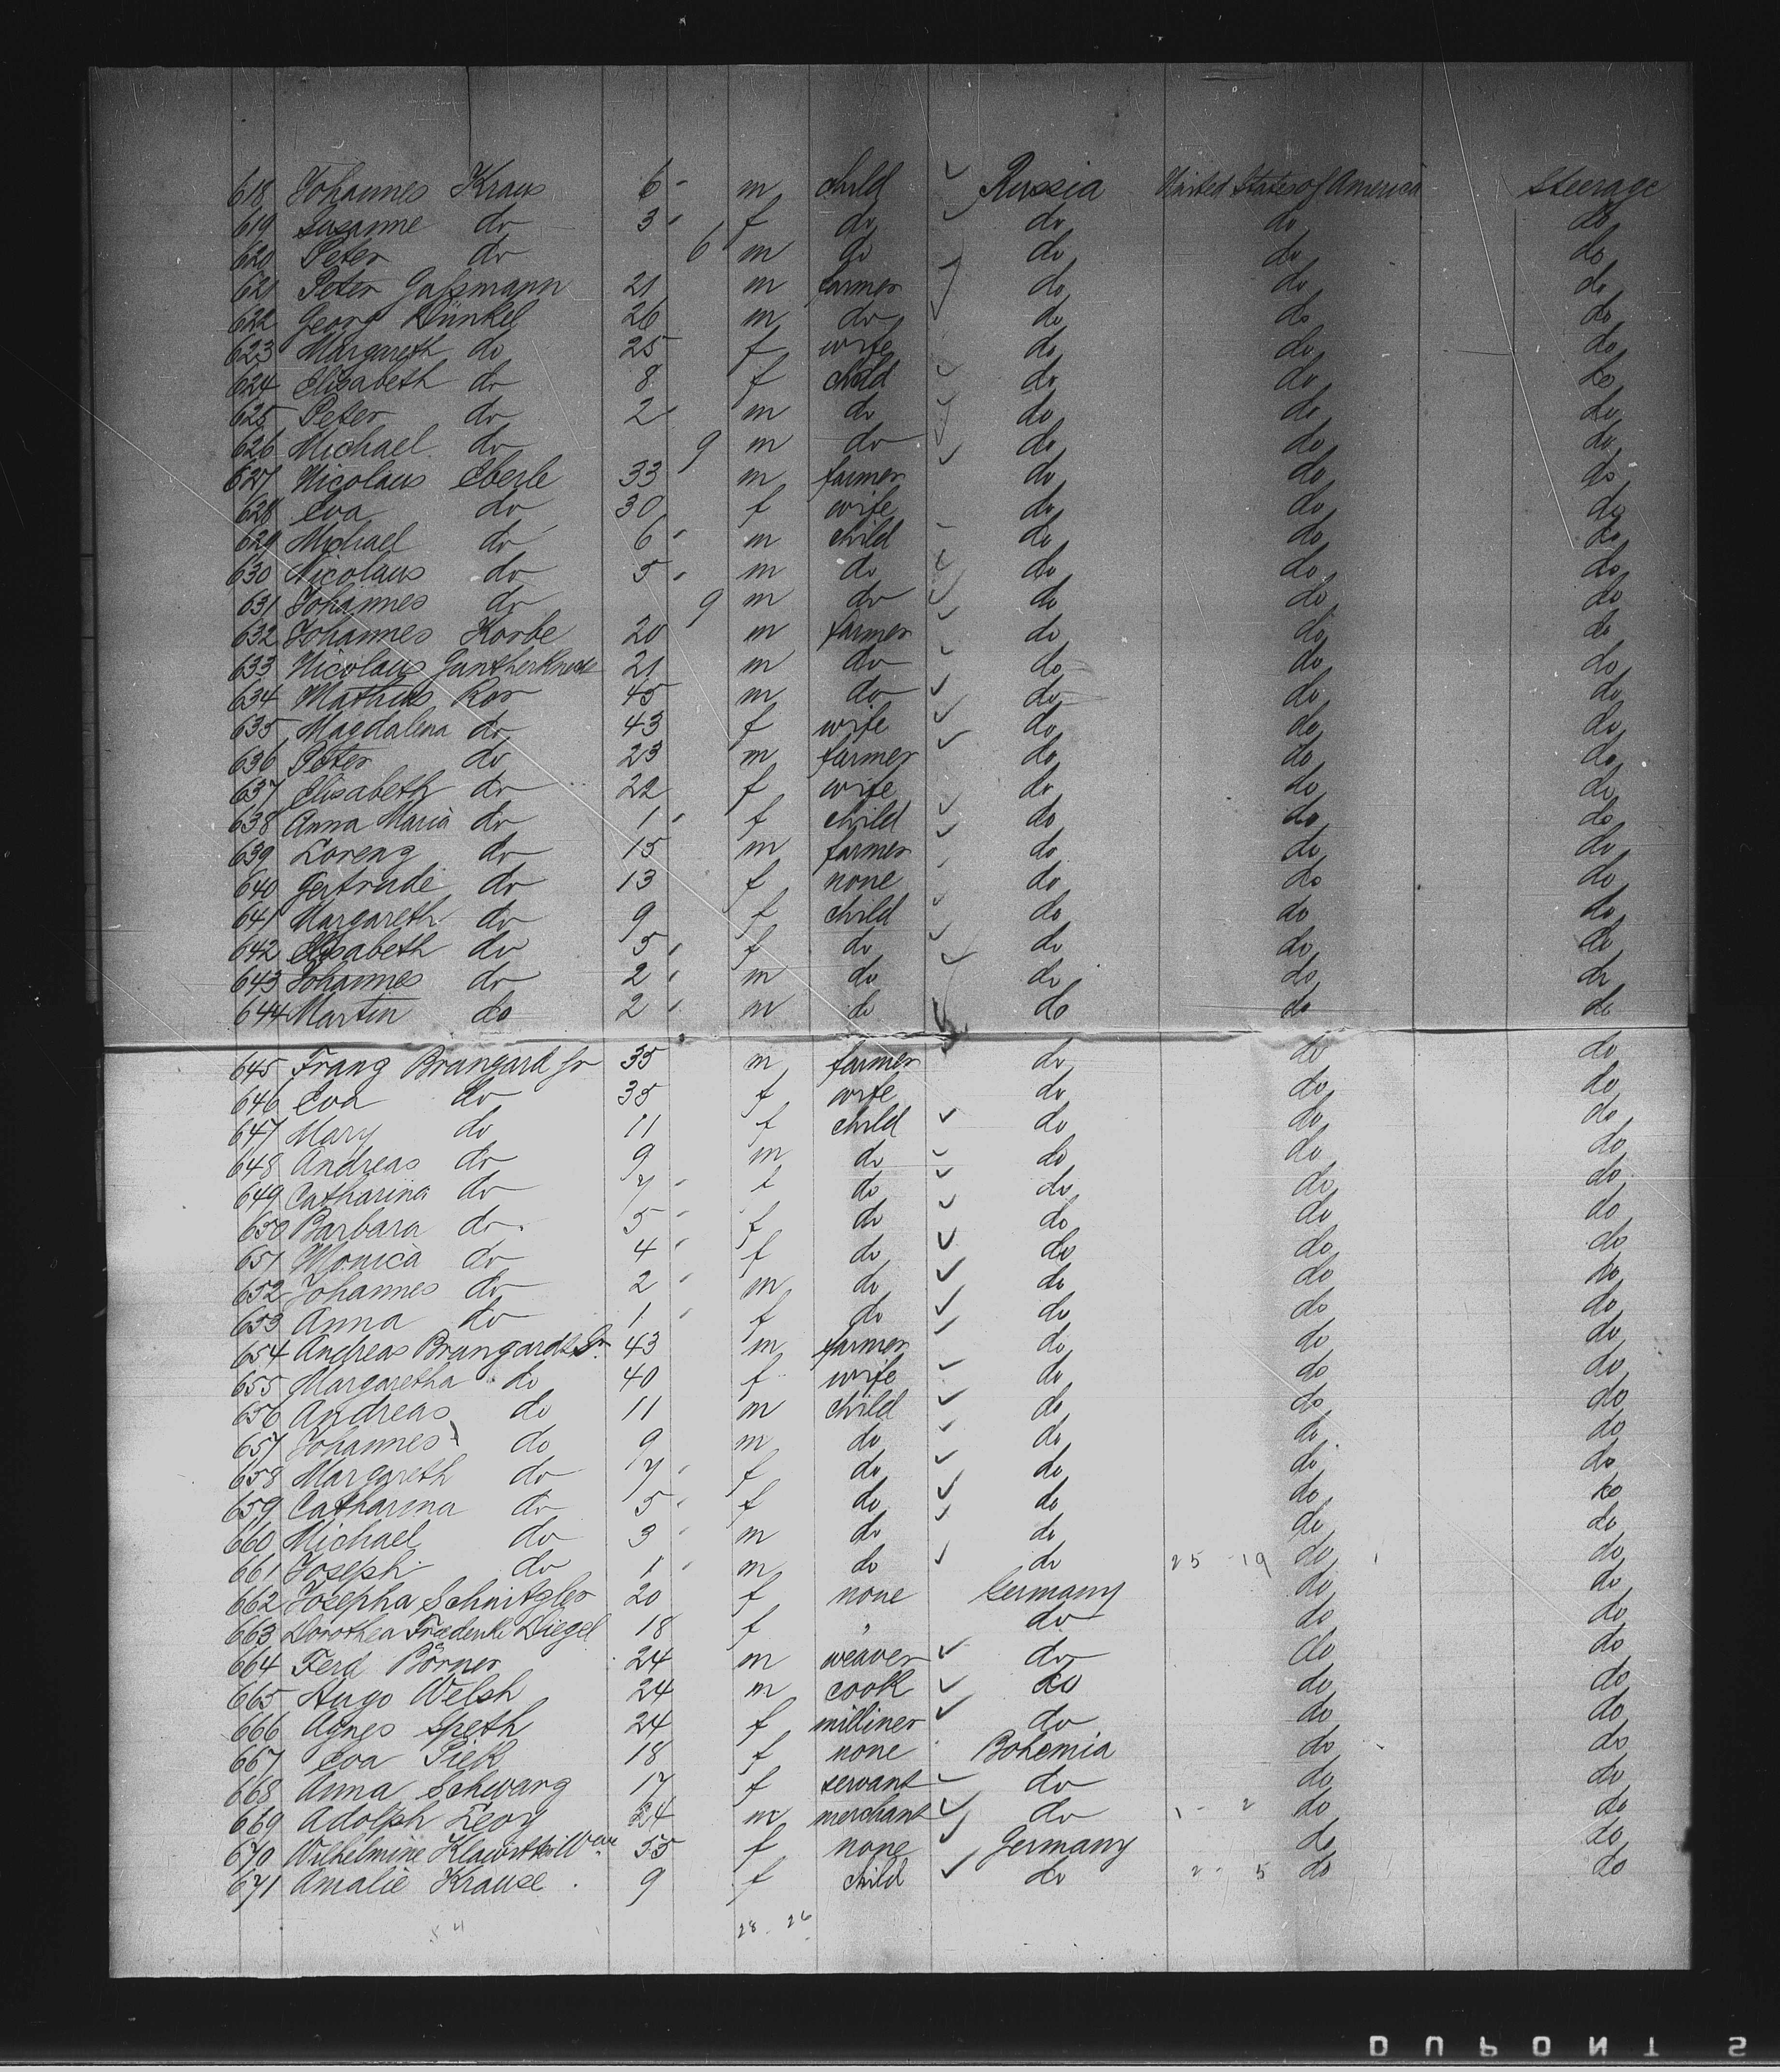 618 Johannes Kraus 6 m child Russia United States of America Steerage
619 Susanne do 3 f do do do do
620 Peter do 6 m do do do do
621 Peter Gaßmann 21 m farmer do do do
622 Georg Dünkel 26 m do do do do
623 Margareth do 25 f wife do do do
624 Elisabeth do 8 f child do do do
625 Peter do 2 m do do do do
626 Michael do 9 m do do do do
627 Nicolaus Eberle 33 m farmer do do do
628 Eva do 30 f wife do do do
629 Michael do 6 m child do do do
630 Nicolaus do 5 m do do do do
631 Johannes do 9 m do do do do
632 Johannes Korbe 20 m farmer do do do
633 Nicolaus 21 m do do do do
634 Mathias Ror 45 m do do do do
635 Magdalena do 43 f wife do do do
636 Peter do 23 m farmer do do do
637 Elisabeth do 22 f wife do do do
638 Anna Maria do 1 f child do do do
639 Lorenz do 15 m farmer do do do
640 Gertrude do 13 f none do do do
641 Margareth do 9 f child do do do
642 Elisabeth do 5 f do do do do
643 Johannes do 2 m do do do do
644 Martin do 2 m do do do do
645 Franz Brungard Jr 35 m farmer do do do
646 Eva do 35 f wife do do do
647 Mary do 11 f child do do do
648 Andreas do 9 m do do do do
649 Catharina do 7 f do do do do
650 Barbara do 5 f do do do do
651 Monica do 4 f do do do do
652 Johannes do 2 m do do do do
653 Anna do 1 f do do do do
654 Andreas Brungardt Sr 43 m farmer do do do
655 Margaretha do 40 f wife do do do
656 Andreas do 11 m child do do do
657 Johannes do 9 m do do do do
658 Margareth do 7 f do do do do
659 Catharina do 5 f do do do do
660 Michael do 3 m do do do do
661 Joseph do 1 m do do 25 19 do do
662 Josepha Schnitzler 20 f none Germany do do
663 Dorothea Friederike Diegel 18 f " do do do
664 Ferd Börner 24 m weaver do do do
665 Hugo Welsh 24 m cook do do do
666 Agnes Speth 24 f milliner do do do
667 Eva Piek 18 f none Bohemia do do
668 Anna Schwarz 17 f servant do do do
669 Adolph Levy 24 m merchant do 1 - 2 do do
670 Wilhelmine 55 f none Germany do do
671 Amalie Krause 9 f child do 2 - 5 do do
28 26
DUPONT S